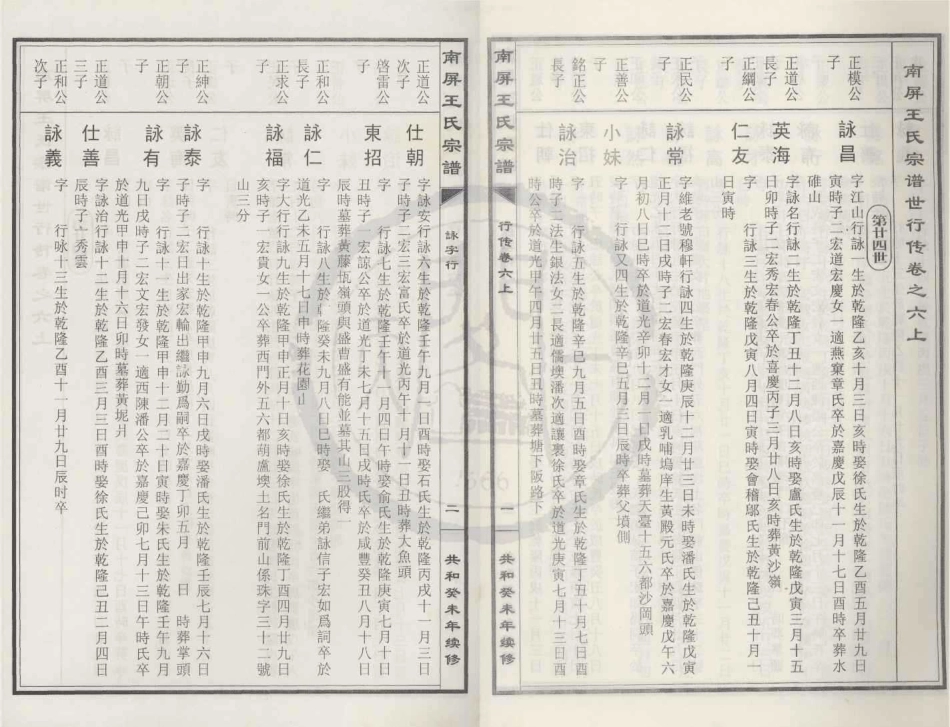 南屏王氏宗谱世行传卷之六上
第廿四世
正模公
子
詠昌
字江山行詠一生於乾隆乙亥十月三日亥時娶徐氏生於乾隆乙酉五月廿九日
寅時子二宏道宏慶女一適燕窠章氏卒於嘉慶戊辰十一月十七日酉時卒葬水
碓山
正道公
長子
英海
字詠名行詠二生於乾隆丁丑十二月八日亥時娶盧氏生於乾隆戊寅三月十五
日卯時子二宏秀宏春公卒於喜慶丙子三月廿八日亥時葬黃沙嶺
正綱公
子
仁友
字 行詠三生於乾隆戊寅八月四日寅時娶會稽鄔氏生於乾隆己丑十月一
日寅時
正民公
子
詠常
字維老號穆軒行詠四生於乾隆庚辰十二月廿三日未時娶潘氏生於乾隆戊寅
正月十二日戌時子二宏春宏才女一適乳哺塢庠生黃殿元氏卒於嘉慶戊午六
月初八日巳時卒於道光辛卯十二月一日戌時墓葬天臺十五六都沙岡頭
正善公
子
小妹
字 行詠又四生於乾隆辛巳五月三日辰時卒葬父墳側
銘正公
長子
詠治
字 行詠五生於乾隆辛巳九月五日酉時娶章氏生於乾隆丁丑十月七日酉
時子二法生銀法女二長適儒墺潘次適讓裏徐氏卒於道光庚寅七月十三日酉
時公卒於道光甲午四月廿五日丑時墓葬塘下阪路下
南屏王氏宗譜
行传卷六上
一
共和癸未年续修
南屏王氏宗譜
詠字行
二
共和癸未年续修
正道公
次子
仕朝
字詠安行詠六生於乾隆壬午九月一日酉時娶石氏生於乾隆丙戌十一月三日
子時子二宏三宏富氏卒於道光丙午十一月十一日丑時葬大魚頭
啓雷公
子
東招
字 行詠七生於乾隆壬午十一月四日午時娶俞氏生於乾隆庚寅七月十日
丑時子一宏諒公卒於道光丁未七月十五日戌時氏卒於咸豐癸丑八月十八日
辰時墓葬黃藤瓨嶺頭與盛曹盛有能並墓其山三股得一
正和公
長子
詠仁
字 行詠八生於乾隆癸未九月八日巳時娶 氏繼弟詠信子宏如爲詞卒於
道光乙未五月十七日申時葬花園山
正求公
子
詠福
字大行行詠九生於乾隆甲申正月十日亥時娶徐氏生於乾隆丁酉四月廿九日
亥時子一宏貴女一公卒葬西門外五六都葫盧墺土名門前山係珠字三十二號
山三分
正紳公
子
詠泰
字 行詠十生於乾隆甲申九月六日戌時娶潘氏生於乾隆壬辰七月十六日
子時子二宏日出家宏輪出繼詠勤爲嗣卒於嘉慶丁卯五月 日 時葬掌頭
正朝公
子
詠有
字 行詠十一生於乾隆甲申十二月二十日寅時娶朱氏生於乾隆壬午九月
九日戌時子二宏文宏發女一適西陳潘公卒於嘉慶己卯七月十三日午時氏卒
於道光甲申十月十六日卯時墓葬黃坭爿
正道公
三子
仕善
字詠治行詠十二生於乾隆乙酉三月三日酉時娶徐氏生於乾隆己丑二月四日
辰時子一秀雲
正和公
次子
詠義
字 行咏十三生於乾隆乙酉十一月廿九日辰时卒